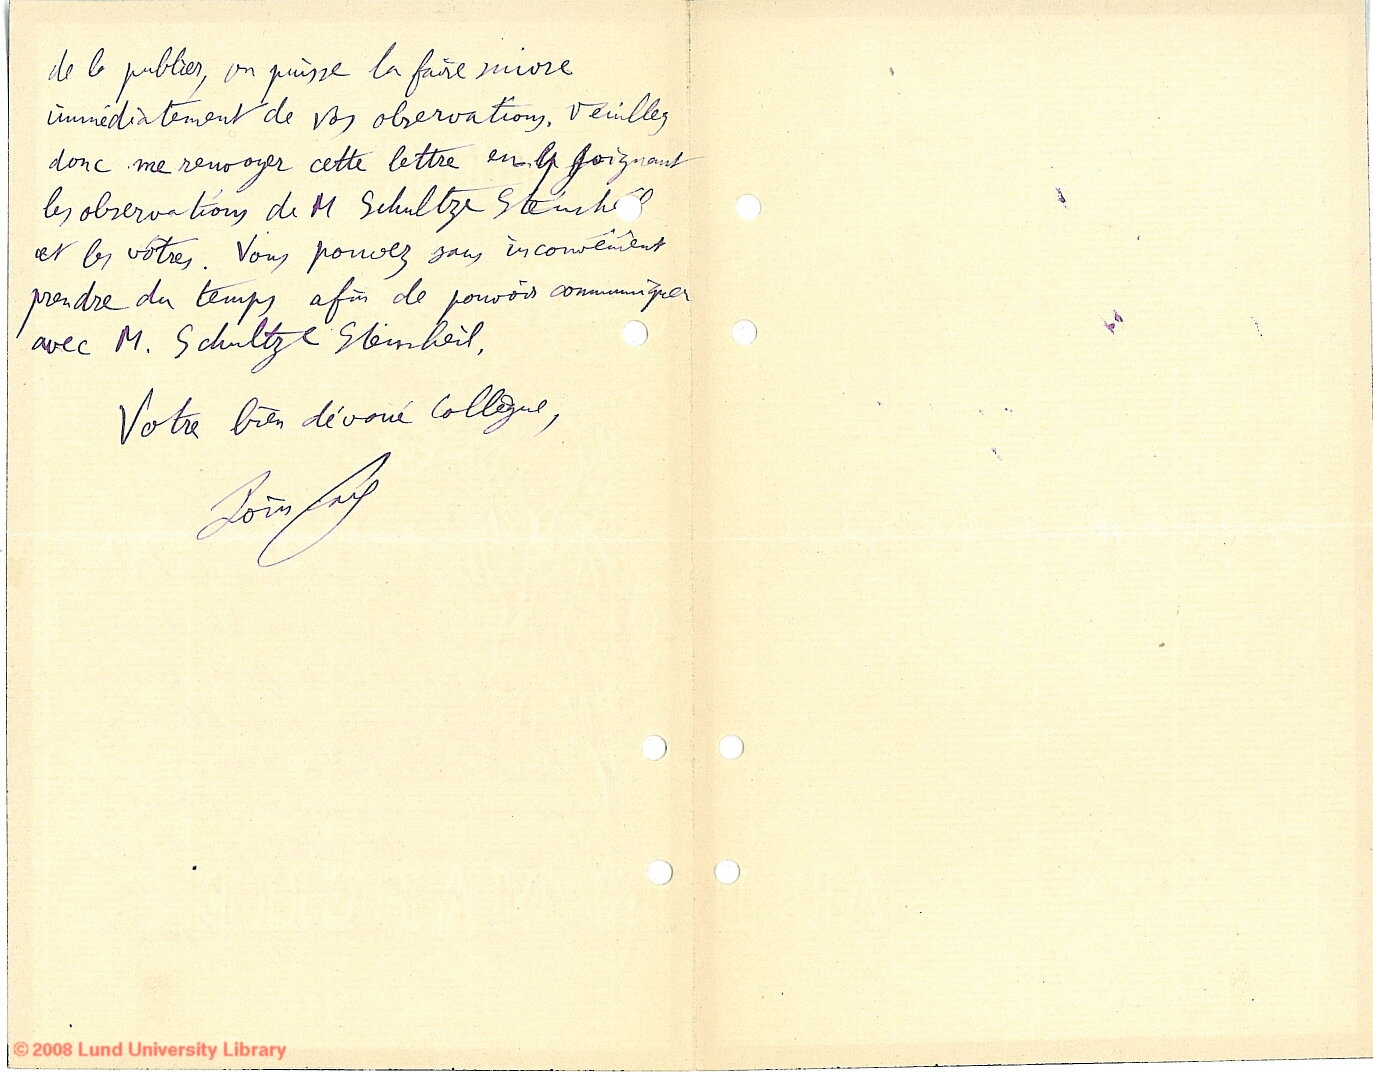 de la publier, on puisse la faire suivre
immédiatement de vos observations. Veuillez
donc me renvoyer cette lettre en y joignant
les observations de M Schultze Steinheil
et les vôtres. Vous pouvez sans inconvénient
prendre du temps afin de pouvoir communiquer
avec M. Schultze Steinheil.
Votre bien dévoué collègue,
Poincaré
© 2008 Lund University Library